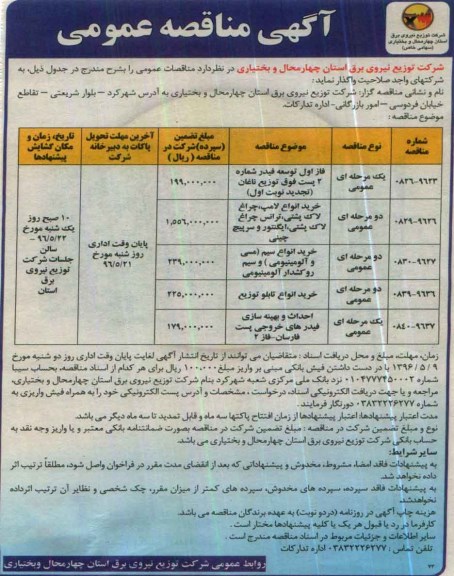 شرکت توزیع نیروی برق
استان چهارمحال و بختیاری
(سهامی خاص)
آگهی مناقصه عمومی
شرکت توزیع نیروی برق استان چهارمحال و بختیاری در نظردارد مناقصات عمومی را بشرح مندرج در جدول ذیل، به
شرکتهای واجد صلاحیت واگذار نماید:
نام و نشانی مناقصه گزار: شرکت توزیع نیروی برق استان چهارمحال و بختیاری به آدرس شهرکرد – بلوار شریعتی – تقاطع
خیابان فردوسی – امور بازرگانی- اداره تدارکات.
موضوع مناقصه:
شماره مناقصه | نوع مناقصه | موضوع مناقصه | مبلغ تضمین (سپرده) شرکت در مناقصه (ریال) | آخرین مهلت تحویل پاکات به دبیرخانه شرکت | تاریخ، زمان و مکان گشایش پیشنهادها
۰۸۲۶-۹۶۲۳ | یک مرحله ای عمومی | فاز اول توسعه فیدر شماره ۲ پست فوق توزیع ناغان (تجدید نوبت اول) | ۱۹۹,۰۰۰,۰۰۰
۰۸۲۹-۹۶۲۶ | دو مرحله ای عمومی | خرید انواع لامپ،چراغ لاک پشتی،ترانس چراغ لاک پشتی،ایگنتور و سرپیچ چینی | ۱,۵۵۶,۰۰۰,۰۰۰
۰۸۳۰-۹۶۲۷ | دو مرحله ای عمومی | خرید انواع سیم (مسی و آلومینیومی) و سیم روکشدار آلومینیومی | ۲۳۹,۰۰۰,۰۰۰
۰۸۳۹-۹۶۳۶ | دو مرحله ای عمومی | خرید انواع تابلو توزیع | ۲۲۵,۰۰۰,۰۰۰
۰۸۴۰-۹۶۳۷ | یک مرحله ای عمومی | احداث و بهینه سازی فیدر های خروجی پست فارسان-فاز ۲ | ۱۷۹,۰۰۰,۰۰۰
پایان وقت اداری روز شنبه مورخ ۹۶/۵/۲۱
۱۰ صبح روز یک شنبه مورخ ۹۶/۵/۲۲ – سالن جلسات شرکت توزیع نیروی برق استان
زمان، مهلت، مبلغ و محل دریافت اسناد: متقاضیان می توانند از تاریخ انتشار آگهی لغایت پایان وقت اداری روز دو شنبه مورخ
۹ / ۵ / ۱۳۹۶ با در دست داشتن فیش بانکی مبنی بر واریز مبلغ ۱۰۰،۰۰۰ ریال برای هر کدام از اسناد مناقصه، بحساب سیبا
شماره نزد بانک ملی مرکزی شعبه شهرکرد بنام شرکت توزیع نیروی برق استان چهارمحال و بختیاری،
مراجعه و یا جهت دریافت الکترونیکی اسناد، درخواست ، مشخصات و آدرس پست الکترونیکی خود را به همراه فیش واریزی به
شماره ۰۳۸۳۲۲۲۶۲۷۷ دورنگار فرمایند.
مدت اعتبار پیشنهادها: اعتبار پیشنهادها از زمان افتتاح پاکتها سه ماه و قابل تمدید تا سه ماه دیگر می باشد.
نوع و مبلغ تضمین شرکت در مناقصه : مبلغ تضمین شرکت در مناقصه بصورت ضمانتنامه بانکی معتبر و یا واریز وجه نقد به
حساب بانکی شرکت توزیع نیروی برق استان چهارمحال و بختیاری می باشد.
سایر شرایط:
به پیشنهادات فاقد امضاء، مشروط، مخدوش و پیشنهاداتی که بعد از انقضای مدت مقرر در فراخوان واصل شود، مطلقاً ترتیب اثر
داده نخواهد شد.
به پیشنهادات فاقد سپرده، سپرده های مخدوش، سپرده های کمتر از میزان مقرر، چک شخصی و نظایر آن ترتیب اثرداده
نخواهدشد.
هزینه چاپ آگهی در روزنامه (دردو نوبت) به عهده برندگان مناقصه می باشد.
کارفرما در رد یا قبول هر یک یا کلیه پیشنهادها مختار است .
سایر اطلاعات و جزئیات مربوط در اسناد مناقصه مندرج است .
تلفن تماس : ۰۳۸۳۲۲۲۶۲۷۷ اداره تدارکات
روابط عمومی شرکت توزیع نیروی برق استان چهارمحال وبختیاری